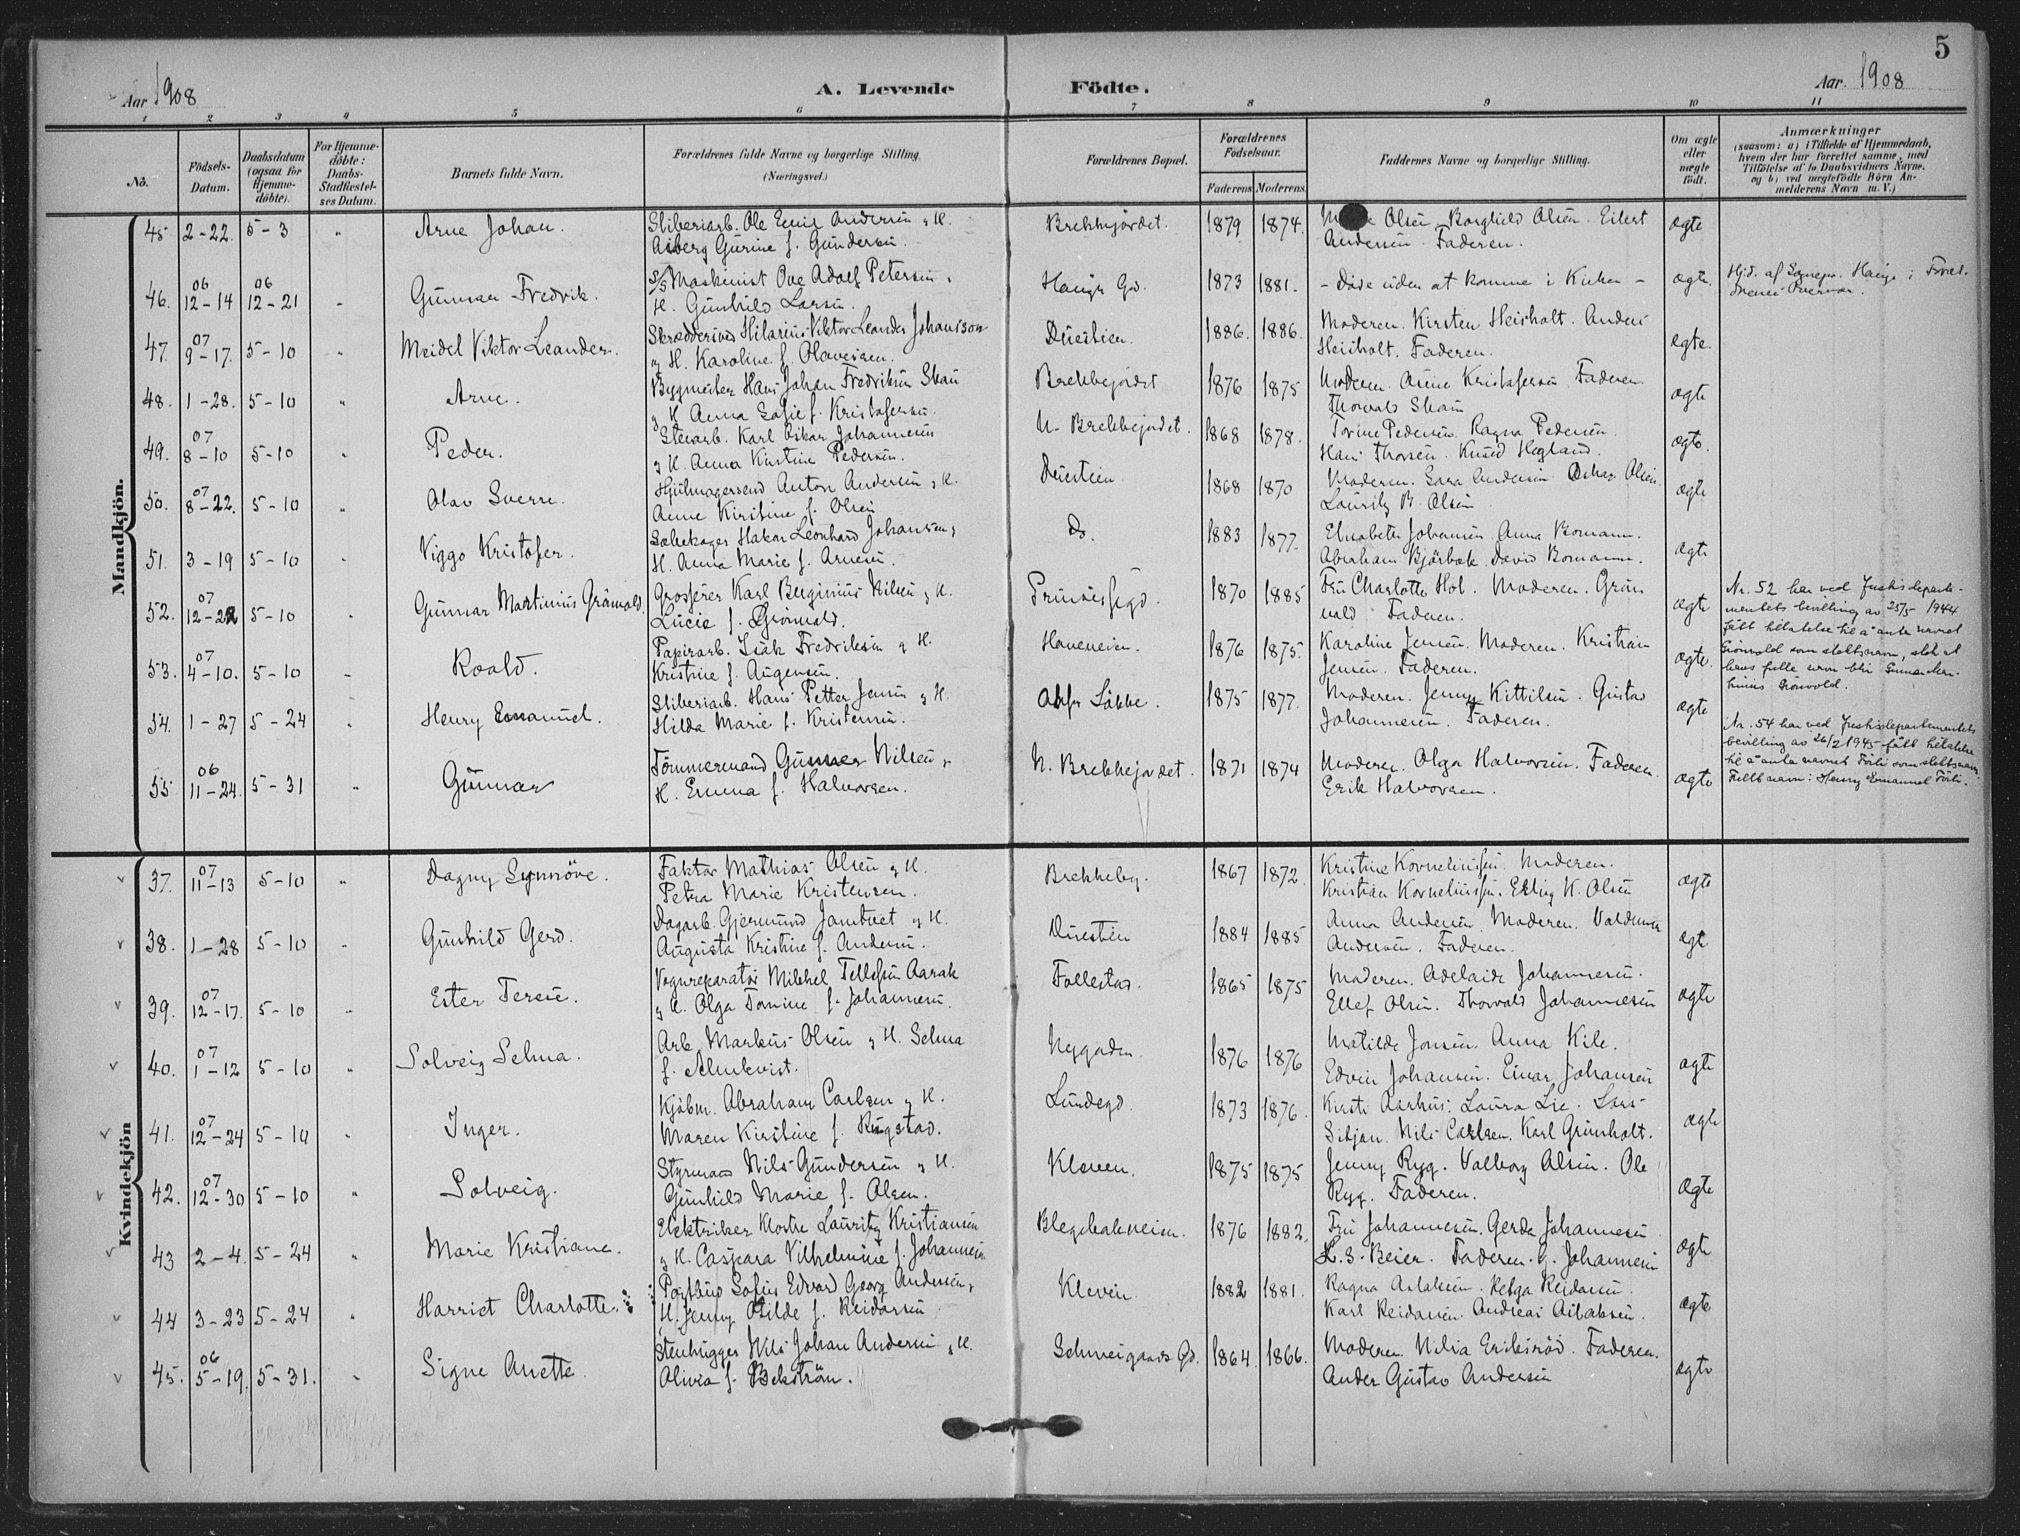 5
Aar 1908
A. Levende
Födte.
Aar 1908
1 2 3 4 5 6 7 8 9 10 11
No.
Födsels-
Datum.
Daabsdatum
(ogsaa for
Hjemme-
döbte).
For Hjemme-
döbte:
Daabs-
Stadfestel-
ses Datum.
Barnets fulde Navn.
Forældrenes fulde Navne og borgerlige Stilling.
(Næringsvei.)
Forældrenes Bopæl.
Forældrenes
Födselsaar.
Faderens Moderens
Faddernes Navne og borgerlige Stilling.
Om ægte
eller
uægte
födt.
Anmærkninger
(saasom: a) i Tilfælde af Hjemmedaab,
hvem der har forrettet samme, med
Tilföielse af to Daabsvidners Navne,
og b) ved uægtefödte Börn An-
melderens Navn m. V.)
Mandkjön.
45 2-22. 5-3 " Arne Johan. Sliberiarb. Ole Emil Andersen & H.
Aasberg Gurine f. Gundersen.
Brekkejordet. 1879 1874. Olsen Borghild Olsen. Eilert
Andersen. Faderen. ægte
46. 06 12-14 06 12-21 Gunnar Fredrik. S/S Maskinist Ove Adolf Petersen &
H. Gunhild Larsen.
Hauges Gd. 1873 1881. - Döde uden at komme i Kirken - ægte.
47. 07 9-17. 5-10 " Meidel Viktor Leander. Skræddersvd Hilarius Viktor Leander Johansson
& H. Karoline f. Olavesen.
Duestien. 1886. 1886. Moderen. Kirsten Heisholt. Anders
Heisholt. Faderen. ægte.
48. 1-28. 5-10 " Arne. Bygmester Hans Johan Fredriksen Skau
& H. Anna Sofie f. Kristofersen.
Brekkejordet 1876 1875 Moderen. Anine Kristofersen Faderen
Thorvald Skau ægte
49. 07 8-10 5-10 Peder. Stenarb. Karl Oskar Johannesen
& H. Anna Kirstine Pedersen.
N. Brekkejordet. 1868 1878. Torine Pedersen. Ragna Pedersen.
Hans Thorsen. Knud Hegland. ægte.
50. 07 8-22. 5-10 " Olav Sverre. Hjulmagersvend Anton Andersen & H.
Anne Kirstine f. Olsen
Duestien. 1868 1870 Moderen. Sara Andersen Oskar Olsen.
Lauritz B. Olsen ægte
51. 3-19 5-10 Viggo Kristofer. Sadelmager Hakon Leonhard Johansen &
H. Anna Marie f. Arnesen.
Do. 1883 1877. Elisabeth Johansen Anna Bomann.
Abraham Bjårbæk. David Bomann. ægte
52. 07 12-22 5-10 Gunnar Martinius Grönvold. Grosserer Karl Berginius Nilsen & H.
Lucie f. Grönvold.
Prinsessegd. 1870 1885 Fru Charlotte Hol. Moderen. Grön
vold Faderen. ægte
Nr. 52 har ved Justisdeparte-
mentets bevilling av 25/5 1944
fått tillatelse til å anta navnet
Grönvold som slektsnavn, slik at
hans fulle navn blir Gunnar Mar-
tinius Grönvold.
53. 07 4-10. 5-10 Roald. Papirarb. Isak Fredriksen & H.
Kristine f. Augensen.
Haveveien. 1876 1875. Karoline Jensen. Moderen. Kristian
Jensen. Faderen. ægte.
54. 1-27 5-24 Henry Emanuel. Sliberiarb. Hans Petter Jensen & H.
Hilda Marie f. Kristensen.
Lökke. 1875 1877. Moderen. Jenny Kittilsen. Gustav
Johannesen. Faderen. ægte
Nr. 54 har ved Justisdepartementets
bevilling av 26/2 1945 fått tillatelse
til å anta navnet Förli som slektsnavn.
Fullt navn: Henry Emanuel Förli.
55 06 11-24. 5-31 " Gunnar Tömmermand Gunner Nilsen &
H. Emma f. Halvorsen.
N. Brekkejordet. 1871 1874 Moderen. Olga Halvorsen. Faderen.
Erik Halvorsen. ægte
Kvindekjön
37. 07 11-13 5-10 " Dagny Synnöve. Faktor Mathias Olsen & H.
Petra Marie Kristensen.
Brekkeby. 1867 1872. Kristine Korneliussen. Moderen.
Kristian Korneliussen. Erling K. Olsen ægte
38. 1-28 5-10 " Gunhild Gerd. Dagarb. Gjermund Jamtvet & H.
Augusta Kristine f. Andersen.
Duestien 1884 1885 Anna Andersen Moderen. Valdemar
Andersen. Faderen. ægte
39. 07 12-17. 5-10 Ester Terese. Vognreparatör Mikkel Tellefsen Aarak
& H. Olga Tomine f. Johannesen.
Follestad. 1865 1875 Moderen. Adelaide Johannesen.
Ellef Olsen. Thorvald Johannesen ægte
40. 07 1-12 5-10 " Solveig Selma. Arb. Markus Olsen & H. Selma
f. Almkvist.
Nygaden 1876 1876 Matilde Jonsen. Anna Kile.
Edvin Johansen. Einar Johansen ægte
41. 07 12-24 5-10 Inger. Kjöbm. Abraham Carlsen & H.
Maren Kirstine f. Rugstad.
Lundegd. 1873 1876. Kirsti Aarhus. Laura Lie. Lars
Siljan. Nils Carlsen. Karl Grimholt. ægte
42. 07 12-30 5-10 " Solveig. Styrmand Nils Gundersen & H.
Gunhild Marie f. Olsen.
Kleven. 1875 1875 Jenny Ryg. Valborg Olsen. Ole
Ryg. Faderen. ægte
43 2-4. 5-24 " Marie Kristiane. Elektriker Klostre Lauritz Kristiansen
& H. Caspara Vilhelmine f. Johannesen
Blegebakveien. 1876 1882. Fru Johannesen. Gerda Johannesen
L. S. Beier. Faderen. G. Johannesen ægte
44 3-23 5-24 " Harriet Charlotte. Postbud Sofus Edvard Georg Andersen &
H. Jenny Otilde f. Reidarsen
Kleven. 1882 1881. Ragna Aslaksen. Helga Reidarsen.
Karl Reidarsen. Andreas Aslaksen. ægte
45. 06 5-19. 5-31. Signe Anette. Stenhugger Nils Johan Andersen & H.
Olivia f. Bekström.
Schweigaards Gd. 1864. 1866. Moderen. Nilia Eriksröd. Faderen.
Ander Gustav Andersen ægte